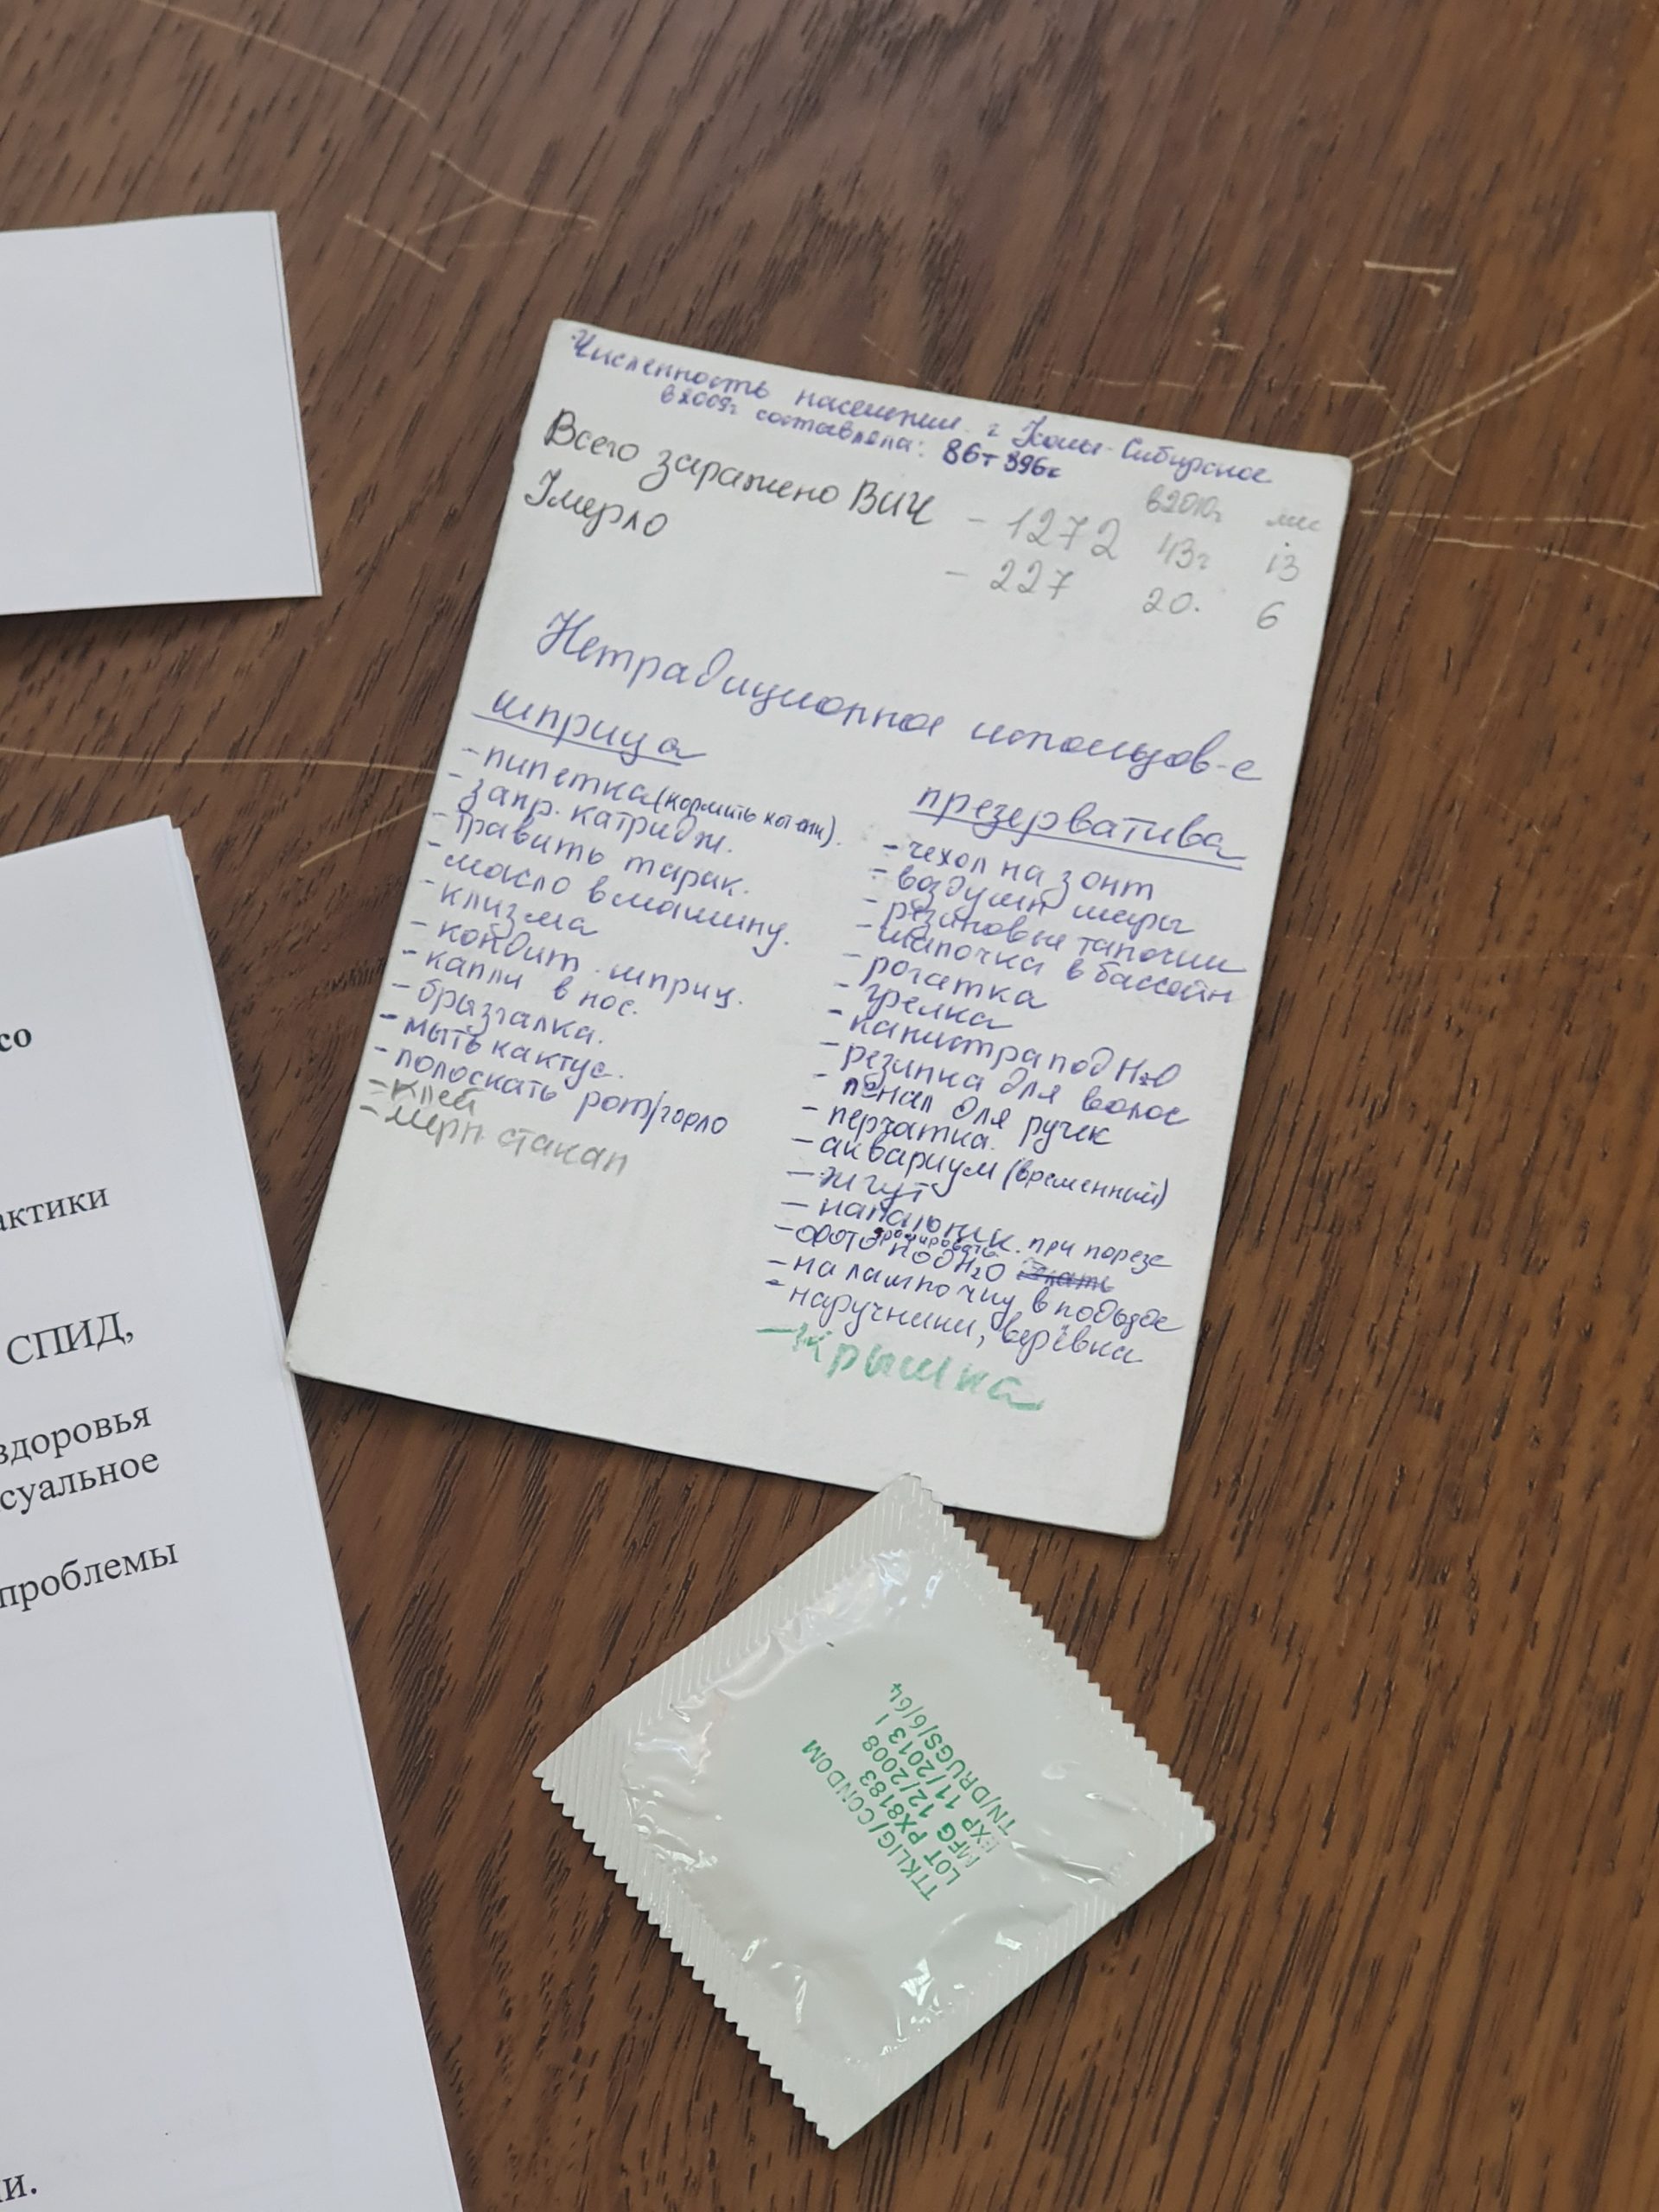 Численность населения г Усолье-Сибирское
в 2009г составляла: 86т 396ч
в 2010г
Всего заражено ВИЧ - 1272 43ч 13
Умерло - 227 20. 6
Нетрадиционное использов-е
шприца
- пипетка (кормить котят).
- запр. катридж.
- травить тарак.
- масло в машину.
- клизма
- кондит. шприц.
- капли в нос.
- брызгалка.
- мыть кактус.
- полоскать рот/горло
- клей
- мерн. стакан
презерватива
- чехол на зонт
- воздушн шары
- резиновые тапочки
- шапочка в бассейн
- рогатка
- грелка
- канистра под H2O
- резинка для волос
- пенал для ручек
- перчатка.
- аквариум (временный)
- жгут
- напальчник. при порезе
- фото под H2O
- на лампочку в подъезде
- наручники, верёвка
- крышка
со
актики
СПИД,
здоровья
суальное
проблемы
и.
TTKLIG/CONDOM
LOT PX8183
MFG 12/2008
EXP 11/2013
TN/DRUGS/6/64